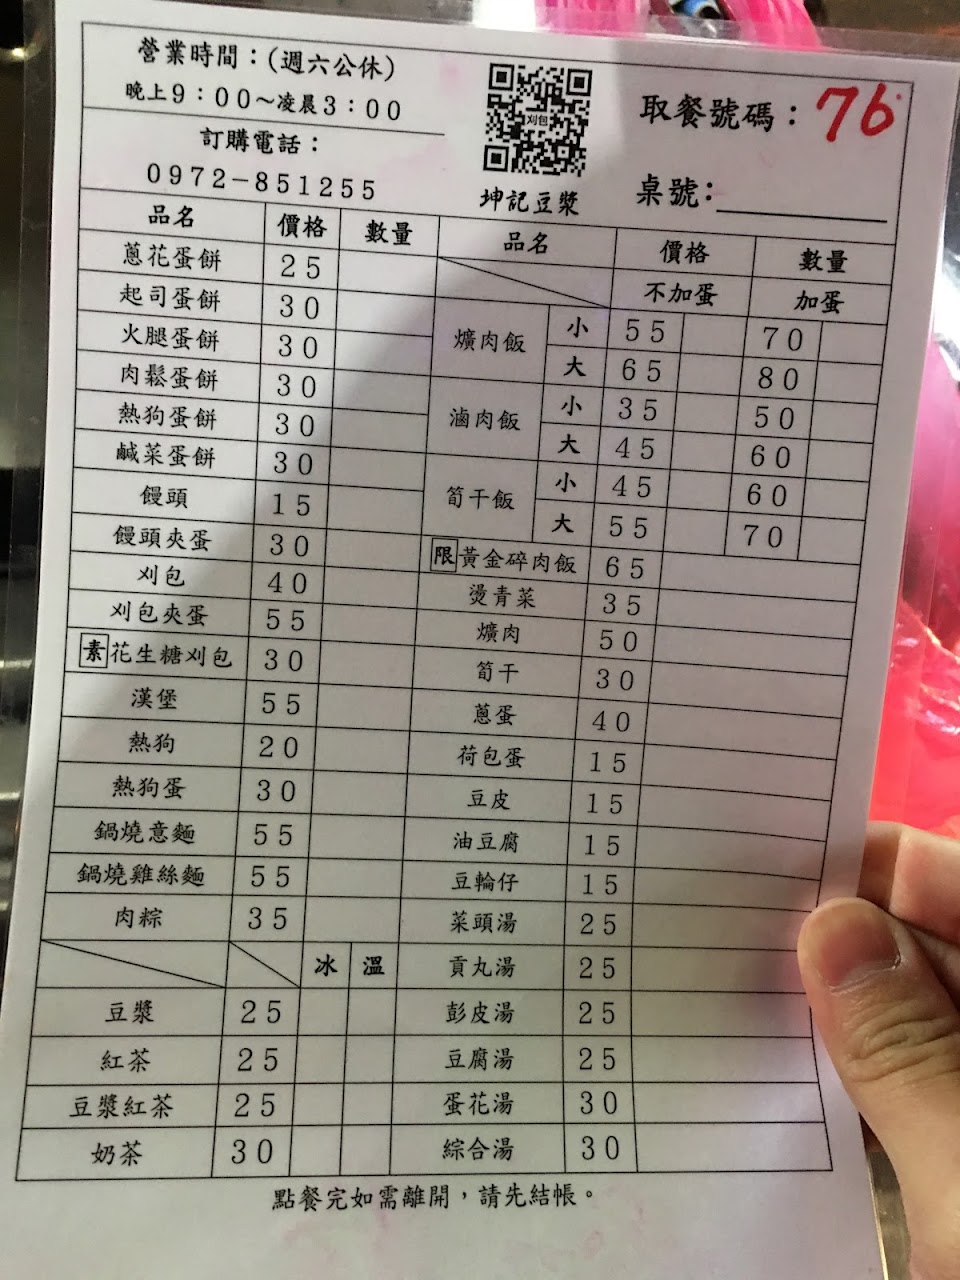 營業時間：(週六公休)
晚上9：00～凌晨3：00
訂購電話：
0972-851255
刈包
坤記豆漿
取餐號碼：76
桌號：
品名 價格 數量
蔥花蛋餅 25
起司蛋餅 30
火腿蛋餅 30
肉鬆蛋餅 30
熱狗蛋餅 30
鹹菜蛋餅 30
饅頭 15
饅頭夾蛋 30
刈包 40
刈包夾蛋 55
素花生糖刈包 30
漢堡 55
熱狗 20
熱狗蛋 30
鍋燒意麵 55
鍋燒雞絲麵 55
肉粽 35
冰 溫
豆漿 25
紅茶 25
豆漿紅茶 25
奶茶 30
品名 價格 數量
不加蛋 加蛋
爌肉飯 小 55 70
大 65 80
滷肉飯 小 35 50
大 45 60
筍干飯 小 45 60
大 55 70
限黃金碎肉飯 65
燙青菜 35
爌肉 50
筍干 30
蔥蛋 40
荷包蛋 15
豆皮 15
油豆腐 15
豆輪仔 15
菜頭湯 25
貢丸湯 25
彭皮湯 25
豆腐湯 25
蛋花湯 30
綜合湯 30
點餐完如需離開，請先結帳。